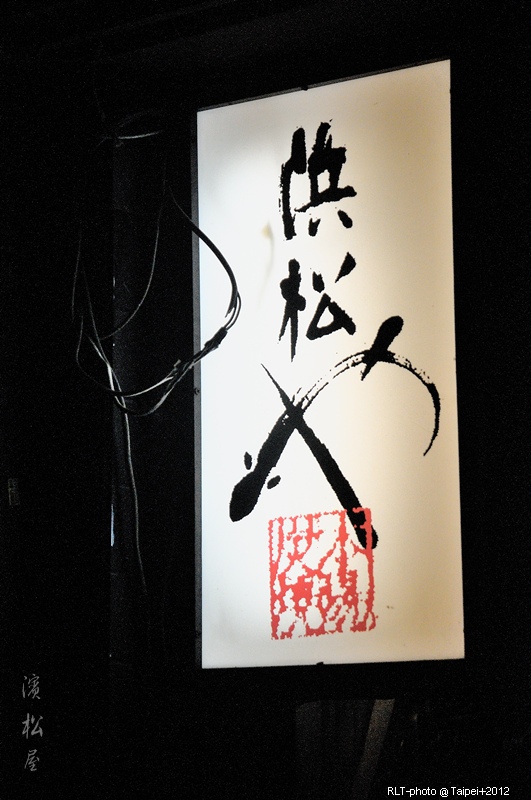 浜松や
濱松屋
RLT-photo @ Taipei+2012